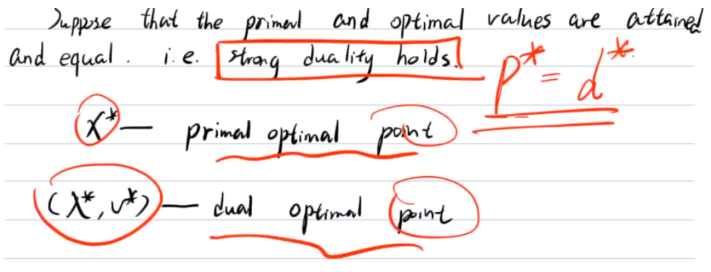 Suppose that the primal and optimal values are attained
and equal. i.e. strong duality holds. p* = d*
x* — primal optimal point
(λ*, ν*) — dual optimal point